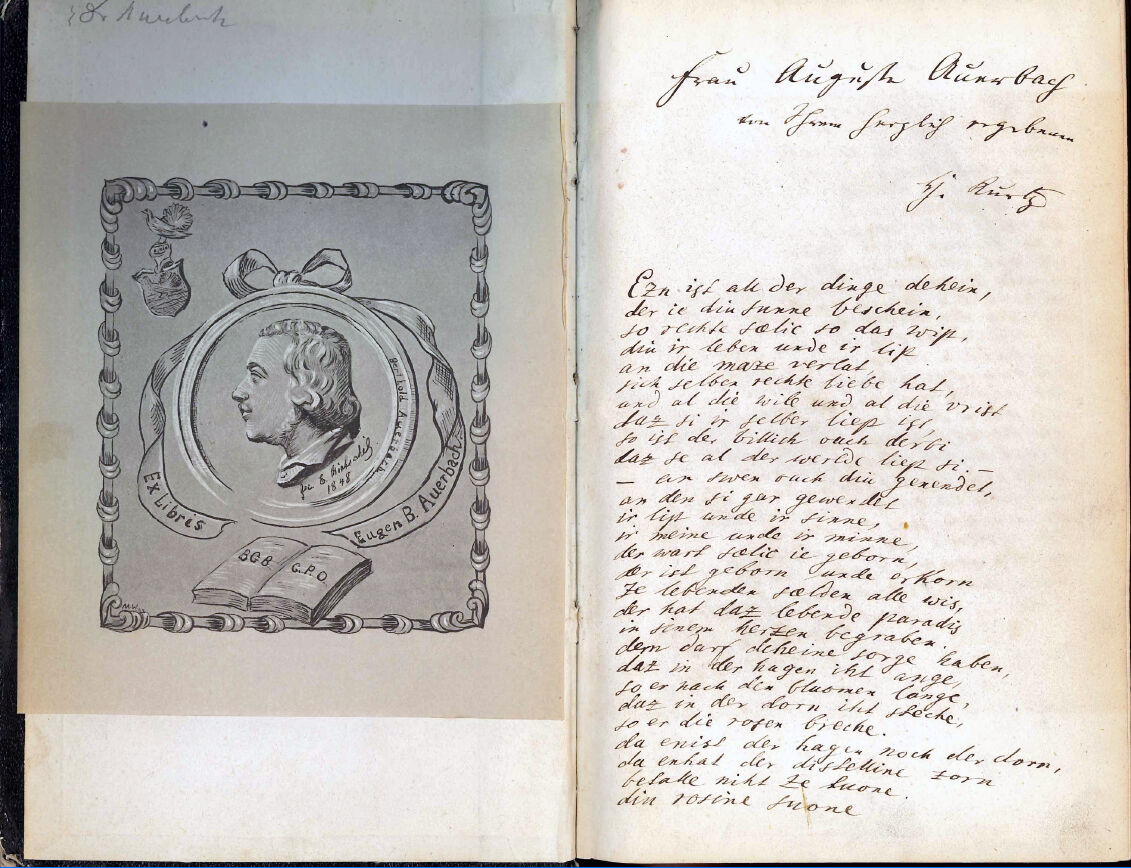 Dr Auerbach
Berthold Auerbach
fec E. Rietschel
1848
Ex Libris
Eugen B. Auerbach.
BGB
C.P.O.
M.W.
Frau Auguste Auerbach
von Ihrem herzlich ergebenen
H. Kurtz
Ezn ist all der dinge dehein,
der ie diu sunne beschein,
so rehte sælic so daz wip,
diu ir leben unde ir lip
an die maze verlat,
sich selben rehte liebe hat,
und al die wile und al die vrist
daz si ir selber liep ist,
so ist der billich ouch derbi
daz se al der werlde liep si. –
– an swen ouch diu genendet,
an den si gar gewendet
ir lip unde ir sinne,
ir meine unde ir minne,
der wart sælic ie geborn,
der ist geborn unde erkorn
ze lebenden sælden alle wis,
der hat daz lebende paradis
in sinem herzen begraben.
dern darf deheine sorge haben,
daz in der hagen iht ange,
so er nach den bluomen lange,
daz in der dorn iht steche,
so er die rosen breche.
da enist der hagen noch der dorn,
da enhat der distelline zorn
betalle niht ze tuone.
diu rosine suone